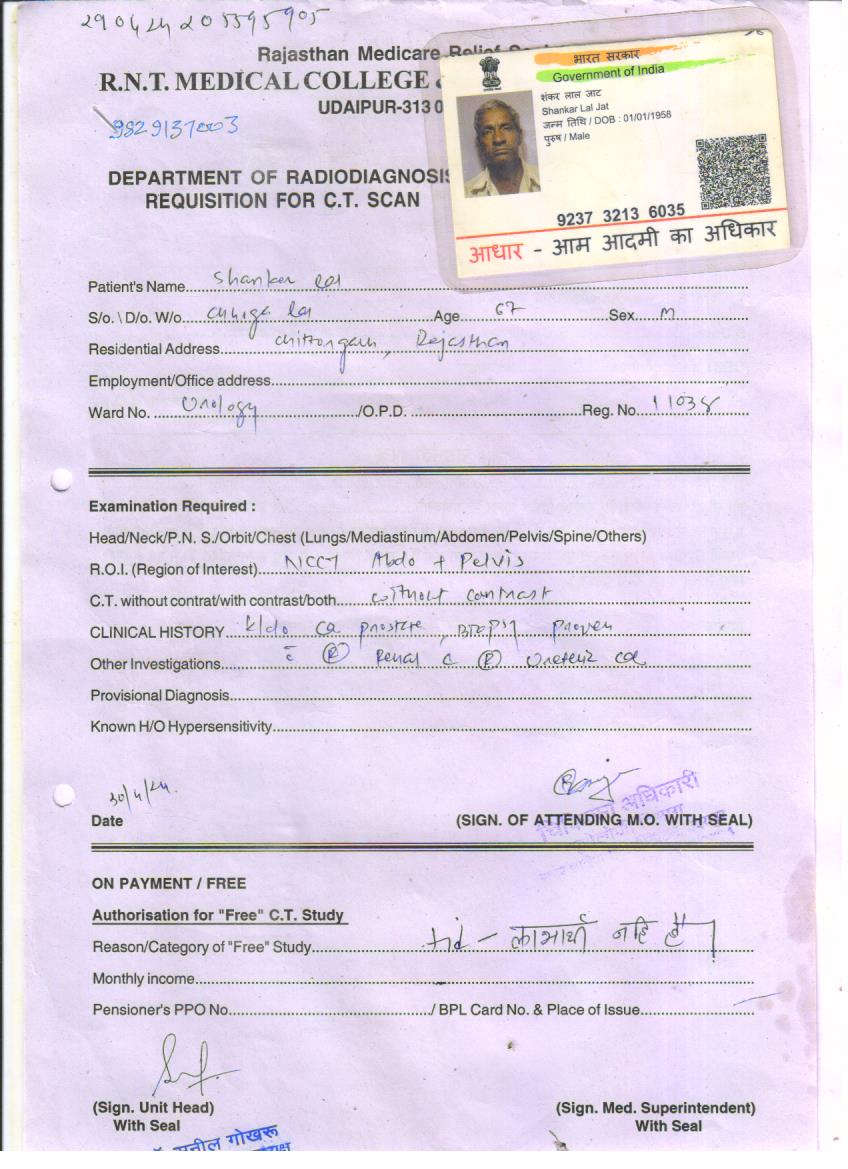 29042420 5595905
Rajasthan Medicare Relief
R.N.T. MEDICAL COLLEGE &
UDAIPUR-313 0
9829137003
DEPARTMENT OF RADIODIAGNOSIS
REQUISITION FOR C.T. SCAN
भारत सरकार
Government of India
शंकर लाल जाट
Shankar Lal Jat
जन्म तिथि / DOB : 01/01/1958
पुरुष / Male
9237 3213 6035
आधार - आम आदमी का अधिकार
Patient's Name Shanker lal
S/o. \ D/o. W/o. lal Age 67 Sex M
Residential Address Chittorgarh, Rajasthan
Employment/Office address
Ward No. Urology /O.P.D. Reg. No. 11038
Examination Required :
Head/Neck/P.N. S./Orbit/Chest (Lungs/Mediastinum/Abdomen/Pelvis/Spine/Others)
R.O.I. (Region of Interest) NCCT Abdo + Pelvis
C.T. without contrat/with contrast/both without contrast
CLINICAL HISTORY K/do ca prostate, Biopsy proven
Other Investigations c̄ (R) Renal c (R) Ureteric
Provisional Diagnosis
Known H/O Hypersensitivity
30/4/24.
Date
(SIGN. OF ATTENDING M.O. WITH SEAL)
चिकित्सा अधिकारी
ON PAYMENT / FREE
Authorisation for "Free" C.T. Study
Reason/Category of "Free" Study लाभार्थी नहि है।
Monthly income
Pensioner's PPO No. / BPL Card No. & Place of Issue
(Sign. Unit Head) (Sign. Med. Superintendent)
With Seal With Seal
सुनील गोखरू